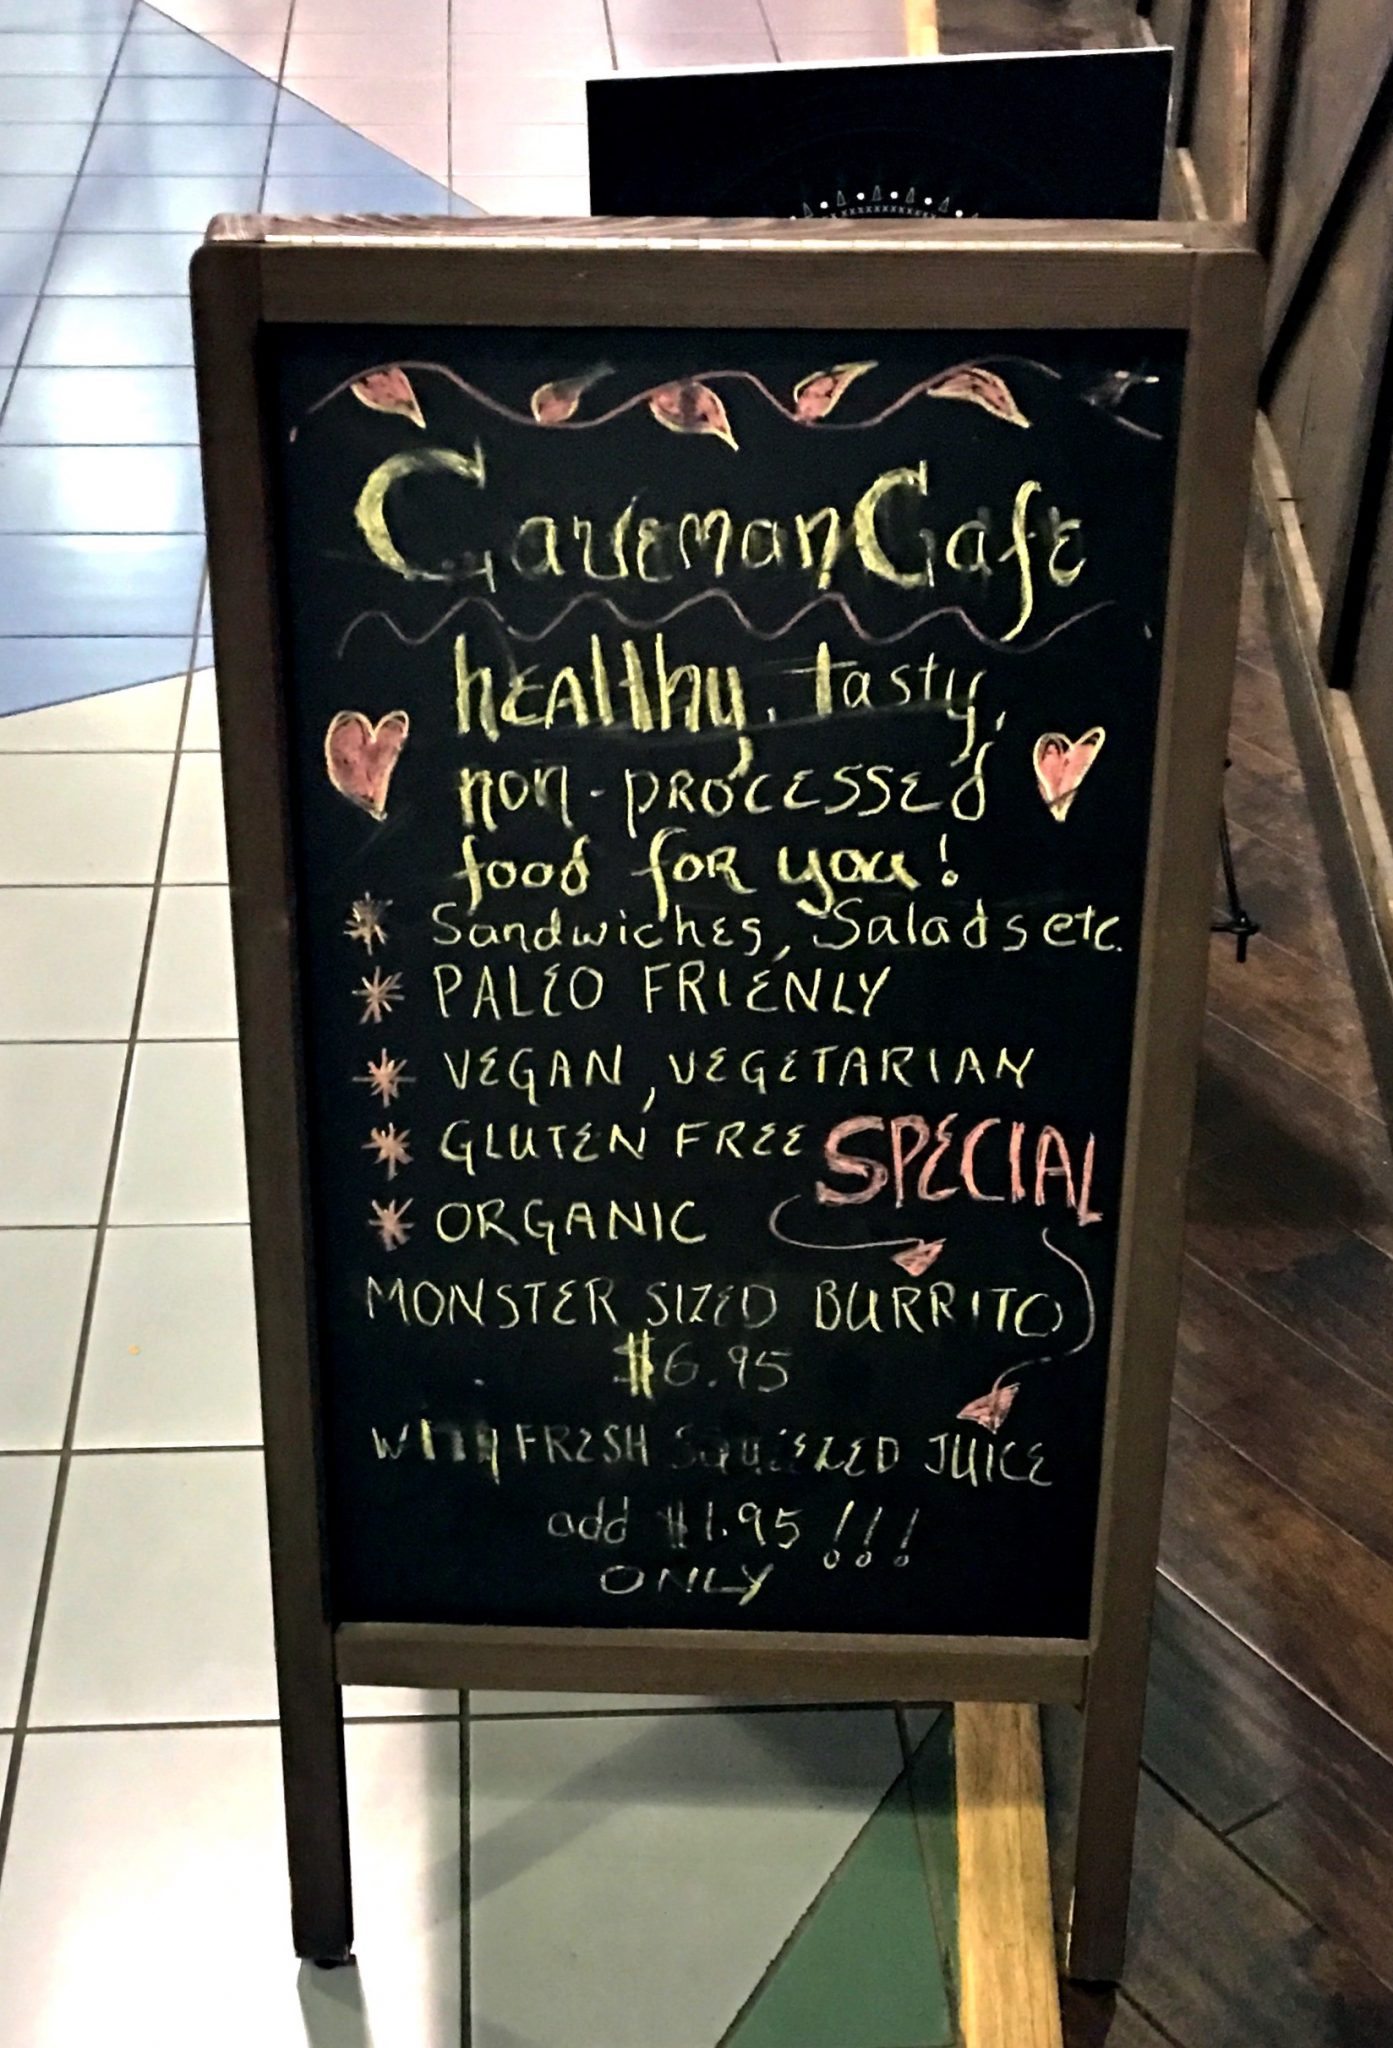 Caveman Cafe
healthy, tasty,
non-PROCESSED
food for you!
Sandwiches, Salads etc.
PALEO FRIENLY
VEGAN, VEGETARIAN
GLUTEN FREE SPECIAL
ORGANIC
MONSTER SIZED BURRITO
$6.95
WITH FRESH SQUEEZED JUICE
add $1.95!!!
ONLY